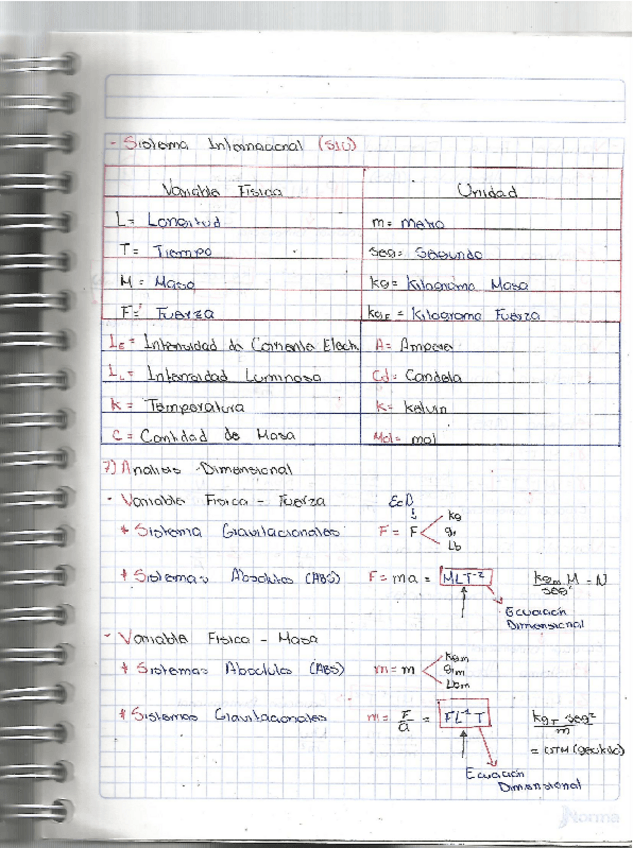 - Sistema Internacional (SIU)
Variable Física Unidad
L = Longitud m = metro
T = Tiempo seg = Segundo
M = Masa kg = Kilogramo Masa
F = Fuerza kgF = Kilogramo Fuerza
IE = Intensidad da Corriente Elect. A = Ampere
IL = Intensidad Luminosa Cd = Candela
K = Temperatura K = Kelvin
C = Cantidad de Masa Mol = mol
7) Analisis Dimensional
- Variable Física - Fuerza EcD
kg
* Sistema Gravitacionales F = F gr
Lb
* Sistemas Absolutos (ABS) F = ma = MLT⁻² kgm M = N
seg²
Ecuación
Dimensional
- Variable Física - Masa
kgm
* Sistemas Absolutos (ABS) m = m grm
Lbm
* Sistemas Gravitacionales m = F/a = FL⁻¹T kgF seg²
m
= UTM (geokilo)
Ecuación
Dimensional
Norma